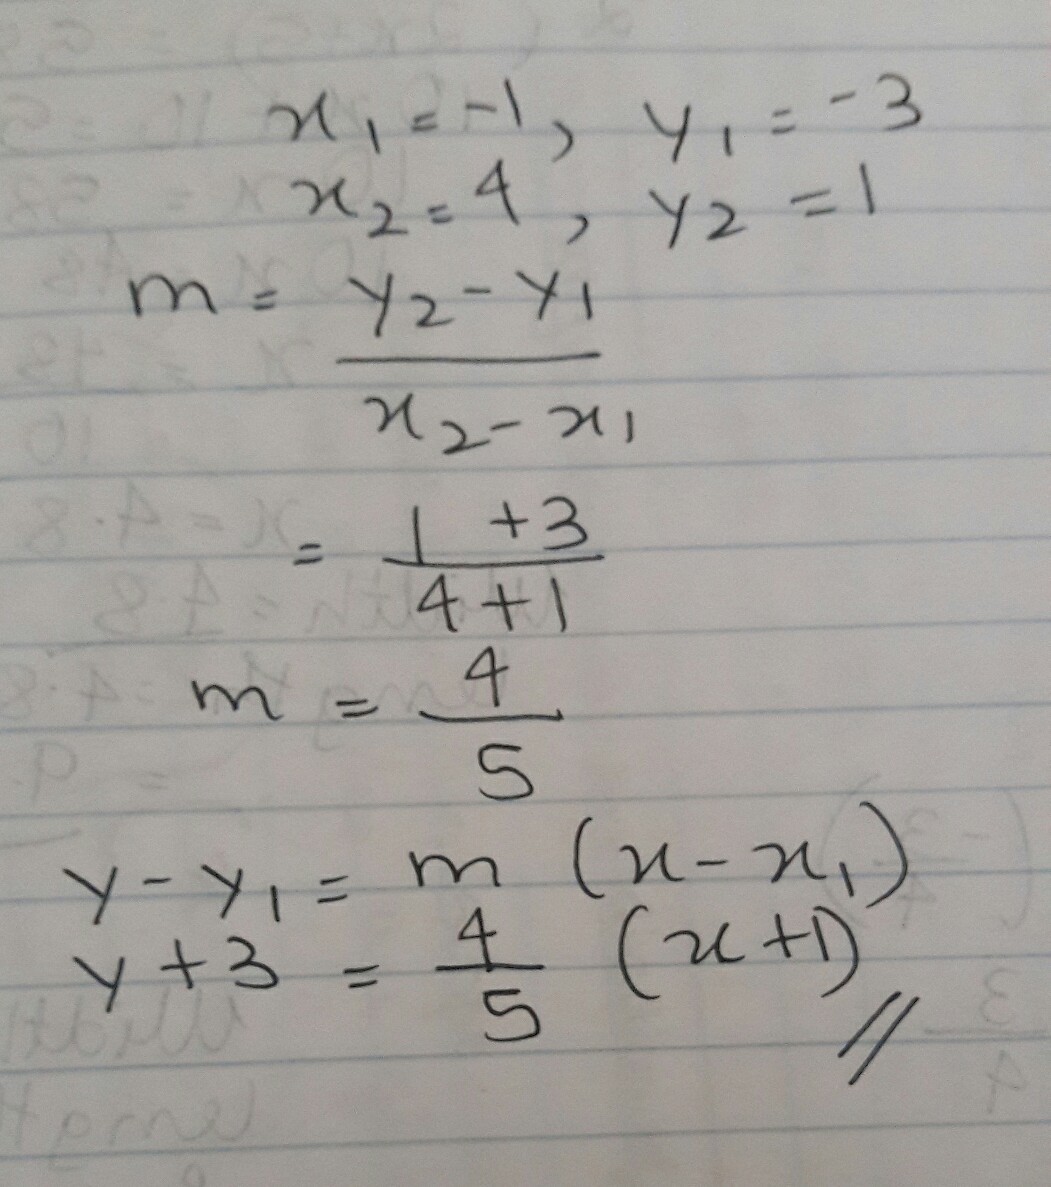 x₁ = -1, y₁ = -3
x₂ = 4, y₂ = 1
m = y₂ - y₁
x₂ - x₁
= 1 + 3
4 + 1
m = 4
5
y - y₁ = m (x - x₁)
y + 3 = 4 (x + 1)
5